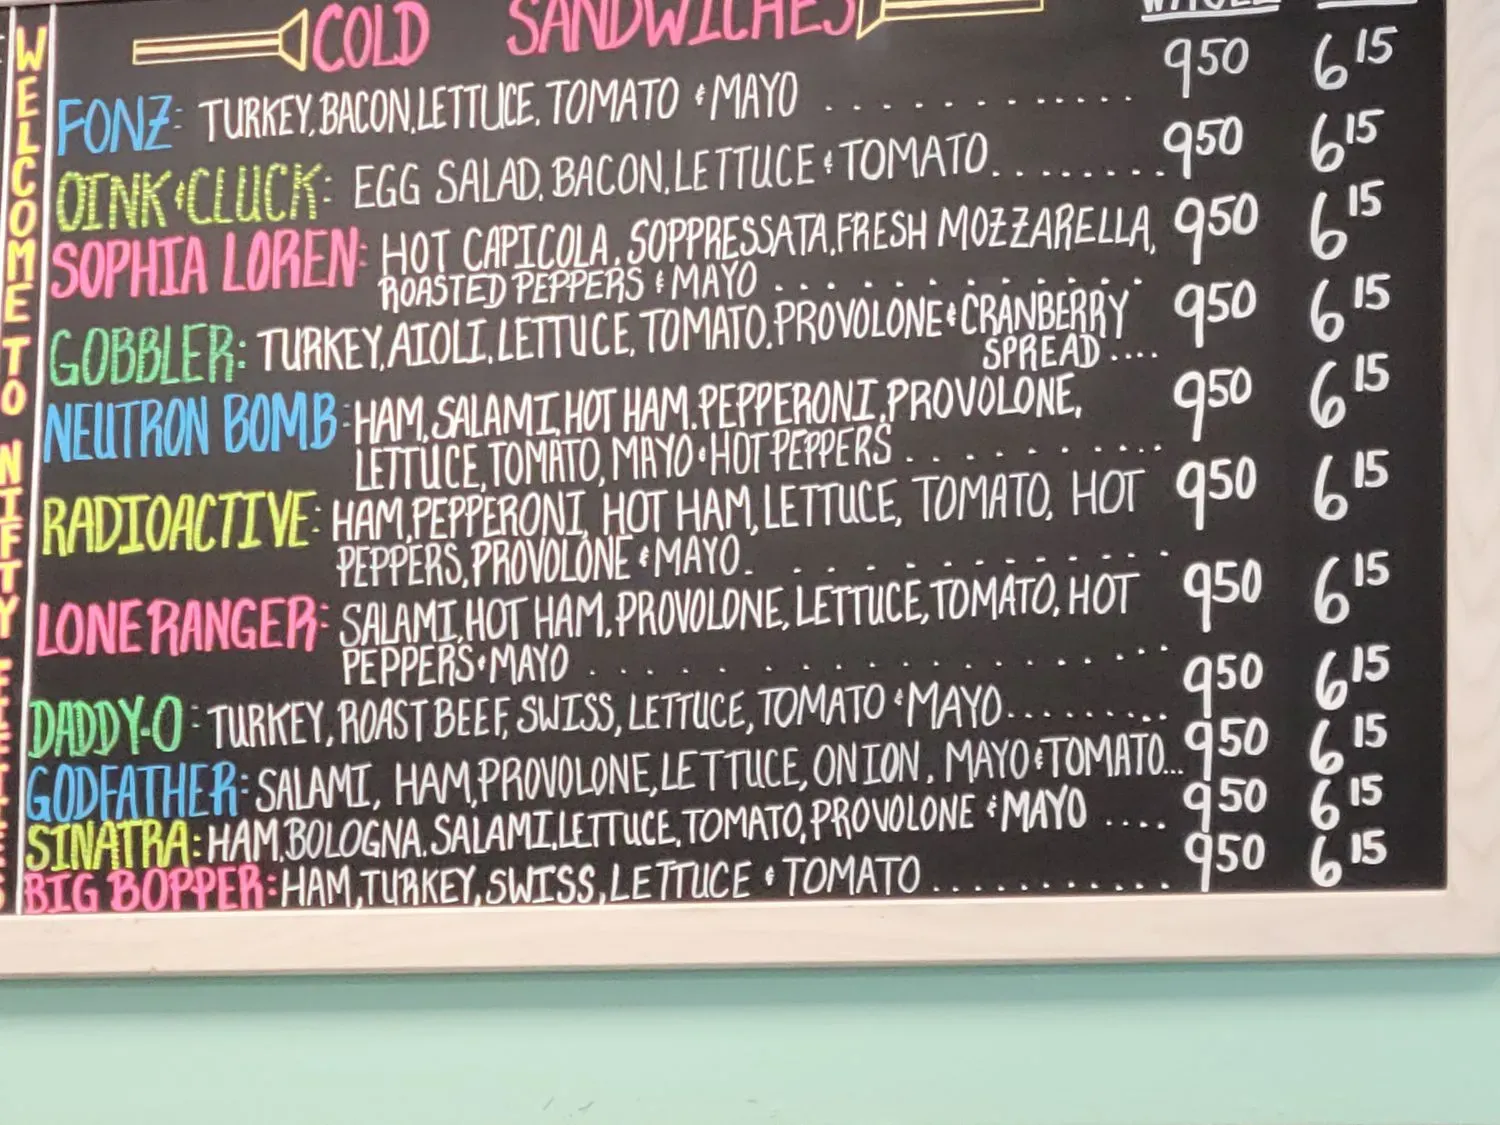 COLD SANDWICHES
WHOLE
FONZ: TURKEY, BACON, LETTUCE, TOMATO & MAYO ............. 9 50 6 15
OINK & CLUCK: EGG SALAD, BACON, LETTUCE & TOMATO........ 9 50 6 15
SOPHIA LOREN: HOT CAPICOLA, SOPPRESSATA, FRESH MOZZARELLA, 9 50 6 15
ROASTED PEPPERS & MAYO .............
GOBBLER: TURKEY, AIOLI, LETTUCE, TOMATO, PROVOLONE & CRANBERRY 9 50 6 15
SPREAD ....
NEUTRON BOMB: HAM, SALAMI, HOT HAM, PEPPERONI, PROVOLONE, 9 50 6 15
LETTUCE, TOMATO, MAYO & HOT PEPPERS ...........
RADIOACTIVE: HAM, PEPPERONI, HOT HAM, LETTUCE, TOMATO, HOT 9 50 6 15
PEPPERS, PROVOLONE & MAYO..............
LONE RANGER: SALAMI, HOT HAM, PROVOLONE, LETTUCE, TOMATO, HOT 9 50 6 15
PEPPERS & MAYO ................
DADDY-O: TURKEY, ROAST BEEF, SWISS, LETTUCE, TOMATO & MAYO......... 9 50 6 15
GODFATHER: SALAMI, HAM, PROVOLONE, LETTUCE, ONION, MAYO & TOMATO... 9 50 6 15
SINATRA: HAM, BOLOGNA, SALAMI, LETTUCE, TOMATO, PROVOLONE & MAYO .... 9 50 6 15
BIG BOPPER: HAM, TURKEY, SWISS, LETTUCE & TOMATO ........... 9 50 6 15
WELCOME TO NIFTY